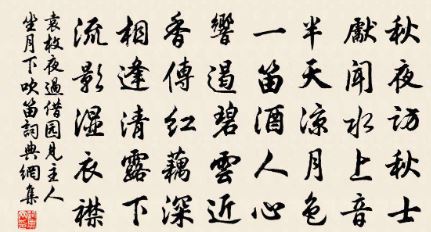 秋夜訪秋士
獻聞水上音
半天凉月色
一笛酒人心
響遏碧雲近
香傳紅藕深
相逢清露下
流影湿衣襟
袁枚夜過借园見主人
坐月下吹笛詞典網集